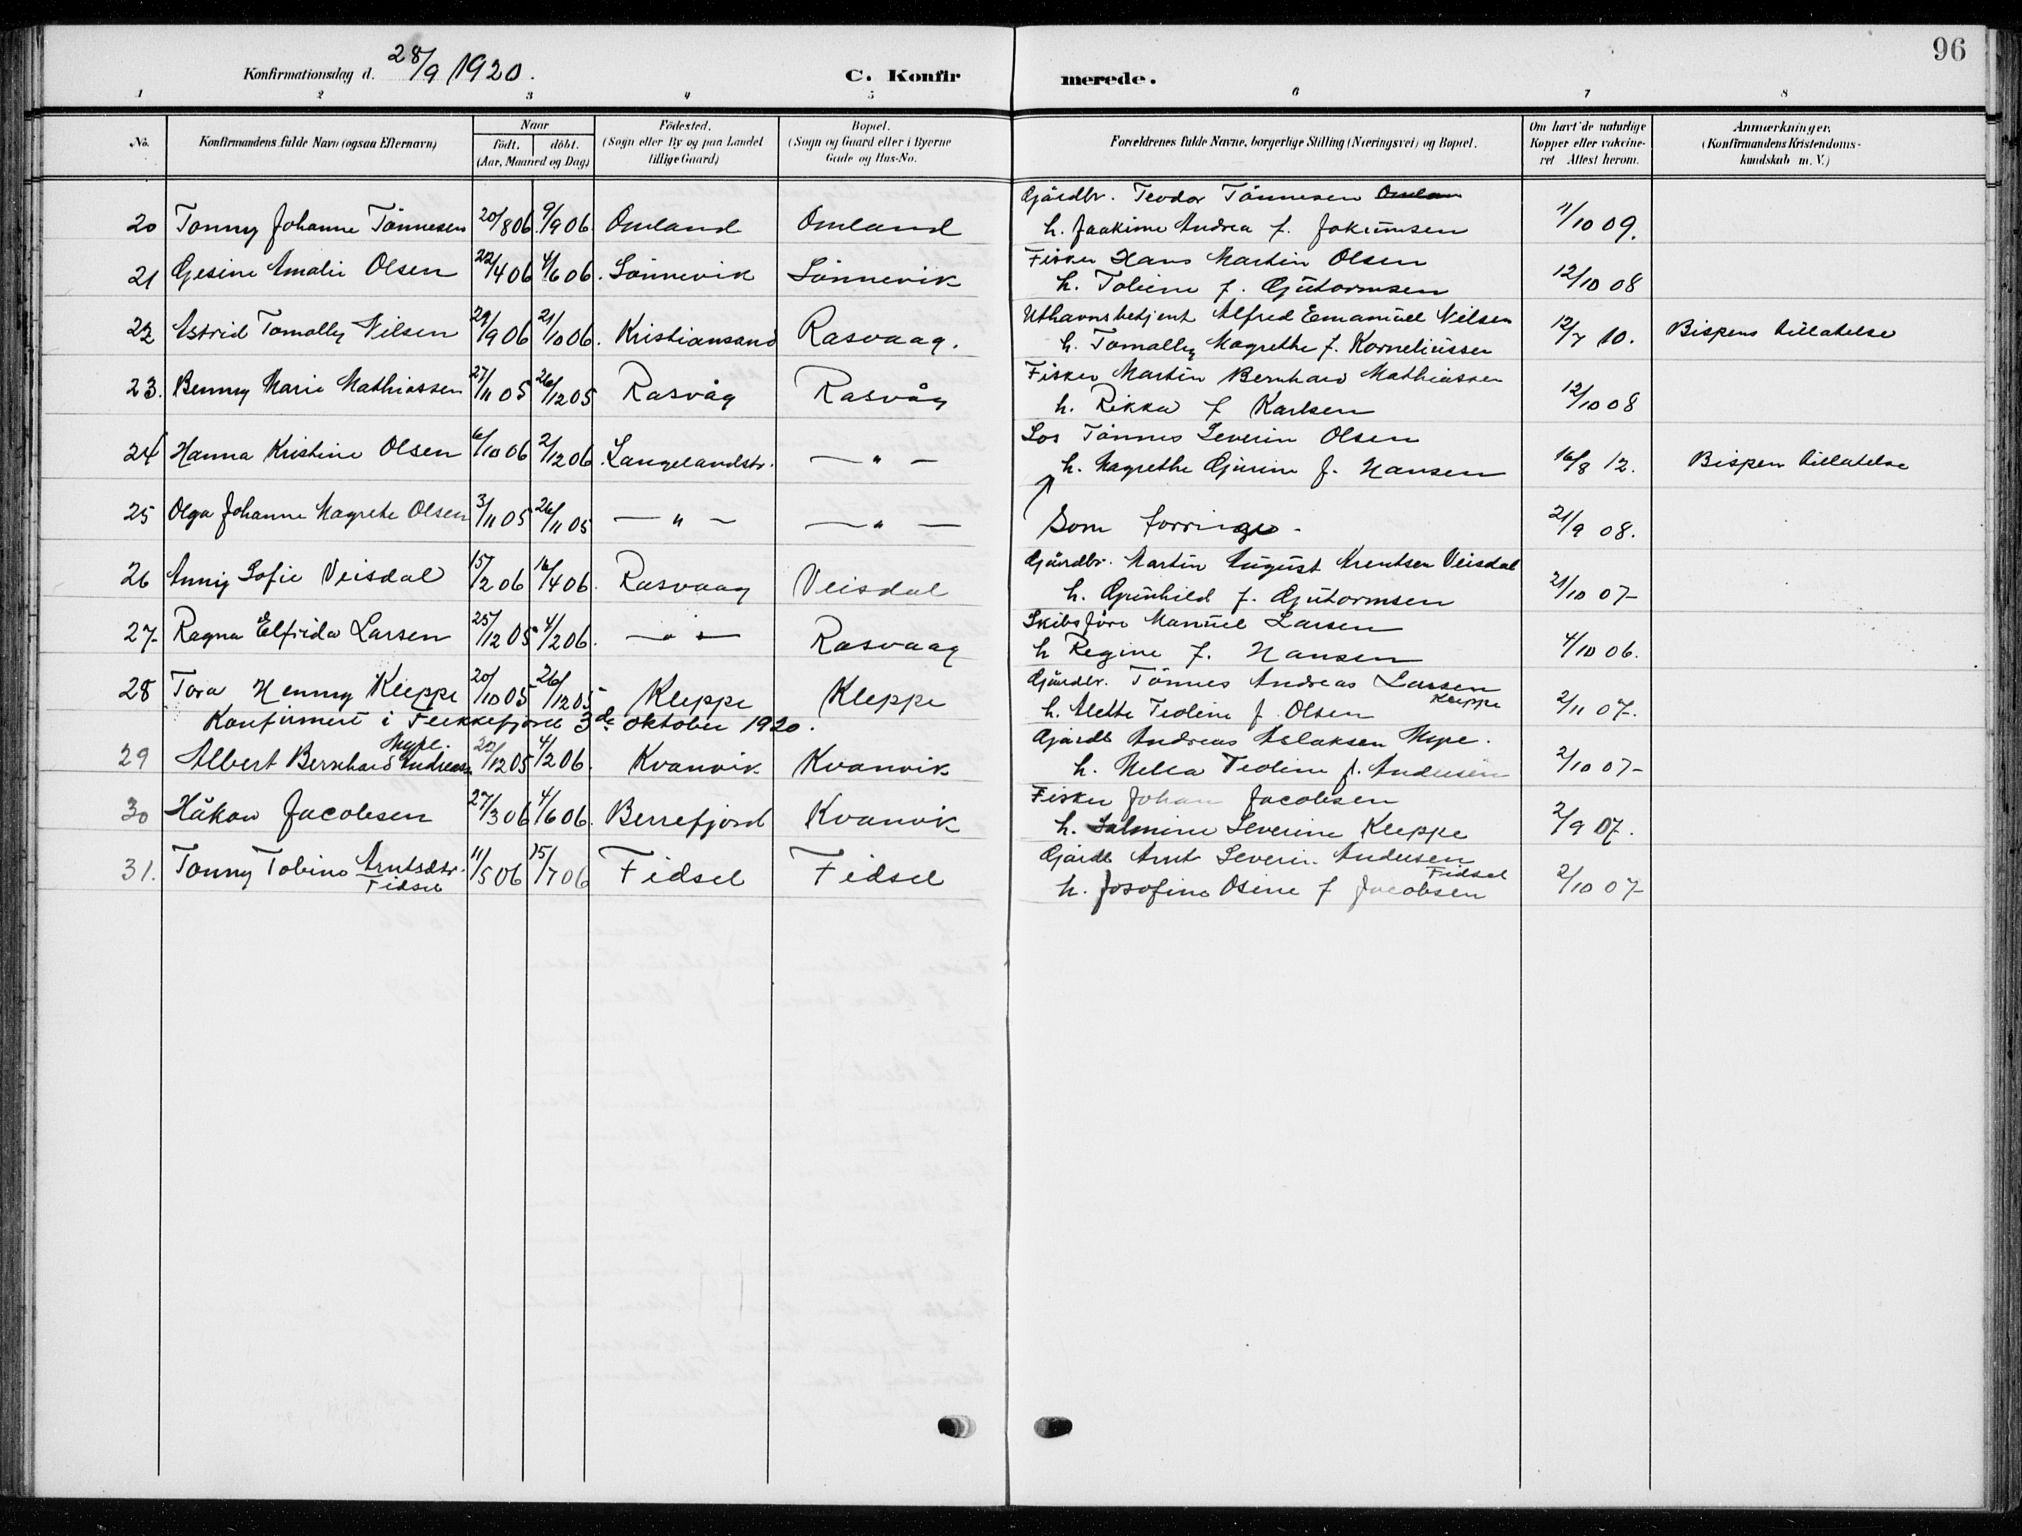 Konfirmationsdag d. 28/9 1920.
C. Konfirmerede.
96
1 2 3 4 5 6 7 8
No. Konfirmandens fulde Navn (ogsaa Efternavn) Naar født. døbt. (Aar, Maaned og Dag) Fødested. (Sogn eller By og paa Landet tillige Gaard) Bopæl. (Sogn og Gaard eller i Byerne Gade og Hus-No. Forældrenes fulde Navne, borgerlige Stilling (Næringsvei) og Bopæl. Om havt de naturlige Kopper eller vakcineret Attest herom. Anmærkninger. (Konfirmandens Kristendomskundskab m. V.)
Gjårdbr. Teodor Tønnesen Omlan
20 Tonny Johanne Tønnesen 20/8 06. 9/9 06. Omland Omland h. Joakime Andrea f. Jokumsen 11/10 09.
Fisker Hans Martin Olsen
21 Gesine Amalie Olsen 22/4 06 4/6 06. Sønnevik Sønnevik h. Toline f. Gutormsen 12/10 08
Uthavnsbetjent Alfred Emanuel Nilsen
22 Astrid Tomally Nilsen 29/9 06 21/10 06. Kristiansand Rasvaag. h. Tomally Magrethe f. Korneliussen 12/7 10. Bispens tillatelse
Fisker Martin Bernhard Mathiassen
23. Benny Marie Mathiassen 27/11 05 26/12 05 Rasvåg Rasvåg h. Rikka f Karlsen 12/10 08
Los Tønnes Severin Olsen
24 Hanna Kristine Olsen 6/10 06 2/12 06. Langelandstr. — " — h. Magrethe Gurine f. Hansen 16/8 12. Bispen tillatelse
25 Olga Johanne Magrete Olsen 3/11 05 26/11 05 — " — — " — Som forrige - 21/9 08.
Gjårdbr. Martin August Arentsen Veisdal
26 Anny Sofie Veisdal 15/2 06 16/4 06. Rasvaag Veisdal h. Gunhild f. Gutormsen 21/10 07-
Skibsfører Manuel Larsen
27- Ragna Elfrida Larsen 25/12 05 4/2 06. — " — Rasvaag h Regine f. Hansen 4/10 06.
Gårdbr. Tønnes Andreas Larsen
28 Tora Henny Kleppe 20/10 05 26/12 05 Kleppe Kleppe h. Alette Teoline f. Olsen Kleppe 2/11 07-.
Konfirmert i Flekkefjord 3de oktober 1920.
Gjårdb Andreas Aslaksen Mype.
29 Albert Bernhard Andreass. Mype. 22/12 05 4/2 06. Kvanvik Kvanvik h. Nella Teoline f. Andersen 2/10 07-
Fisker Johan Jacobsen
30 Håkon Jacobsen 27/3 06 4/6 06. Berrefjord Kvanvik h. Salmine Severine Kleppe 2/9 07.
Gårdb Arnt Severin Andersen
31. Tonny Tobine Arntsdtr. Fidsel 11/5 06 15/7 06 Fidsel Fidsel h. Josefine Osine f Jacobsen Fidsel 2/10 07-